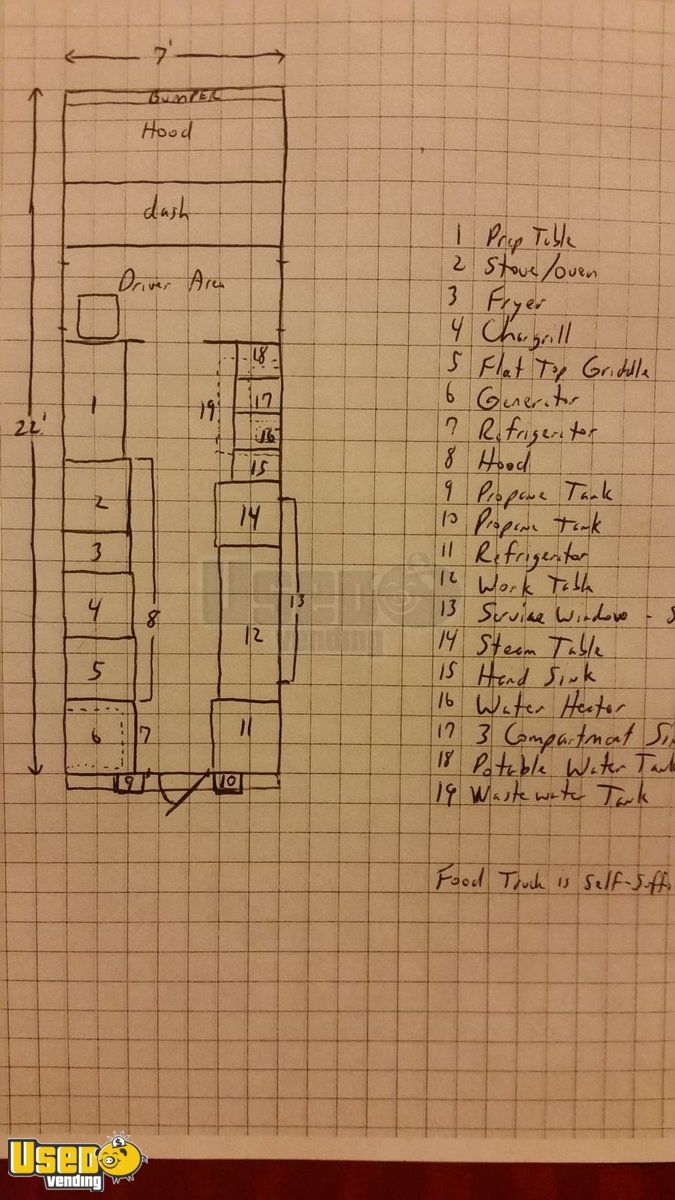 7'
BUMPER
Hood
dash
Driver Area
22'
1
2
3
4
5
6
7
8
9
10
11
12
13
14
15
16
17
18
19
1 Prep Table
2 Stove/oven
3 Fryer
4 Chargrill
5 Flat Top Griddle
6 Generator
7 Refrigerator
8 Hood
9 Propane Tank
10 Propane Tank
11 Refrigerator
12 Work Table
13 Service Window - S
14 Steam Table
15 Hand Sink
16 Water Heater
17 3 Compartment Sin
18 Potable Water Tank
19 Wastewater Tank
Food Truck is Self-Suffi
USED
vending
USED
vending